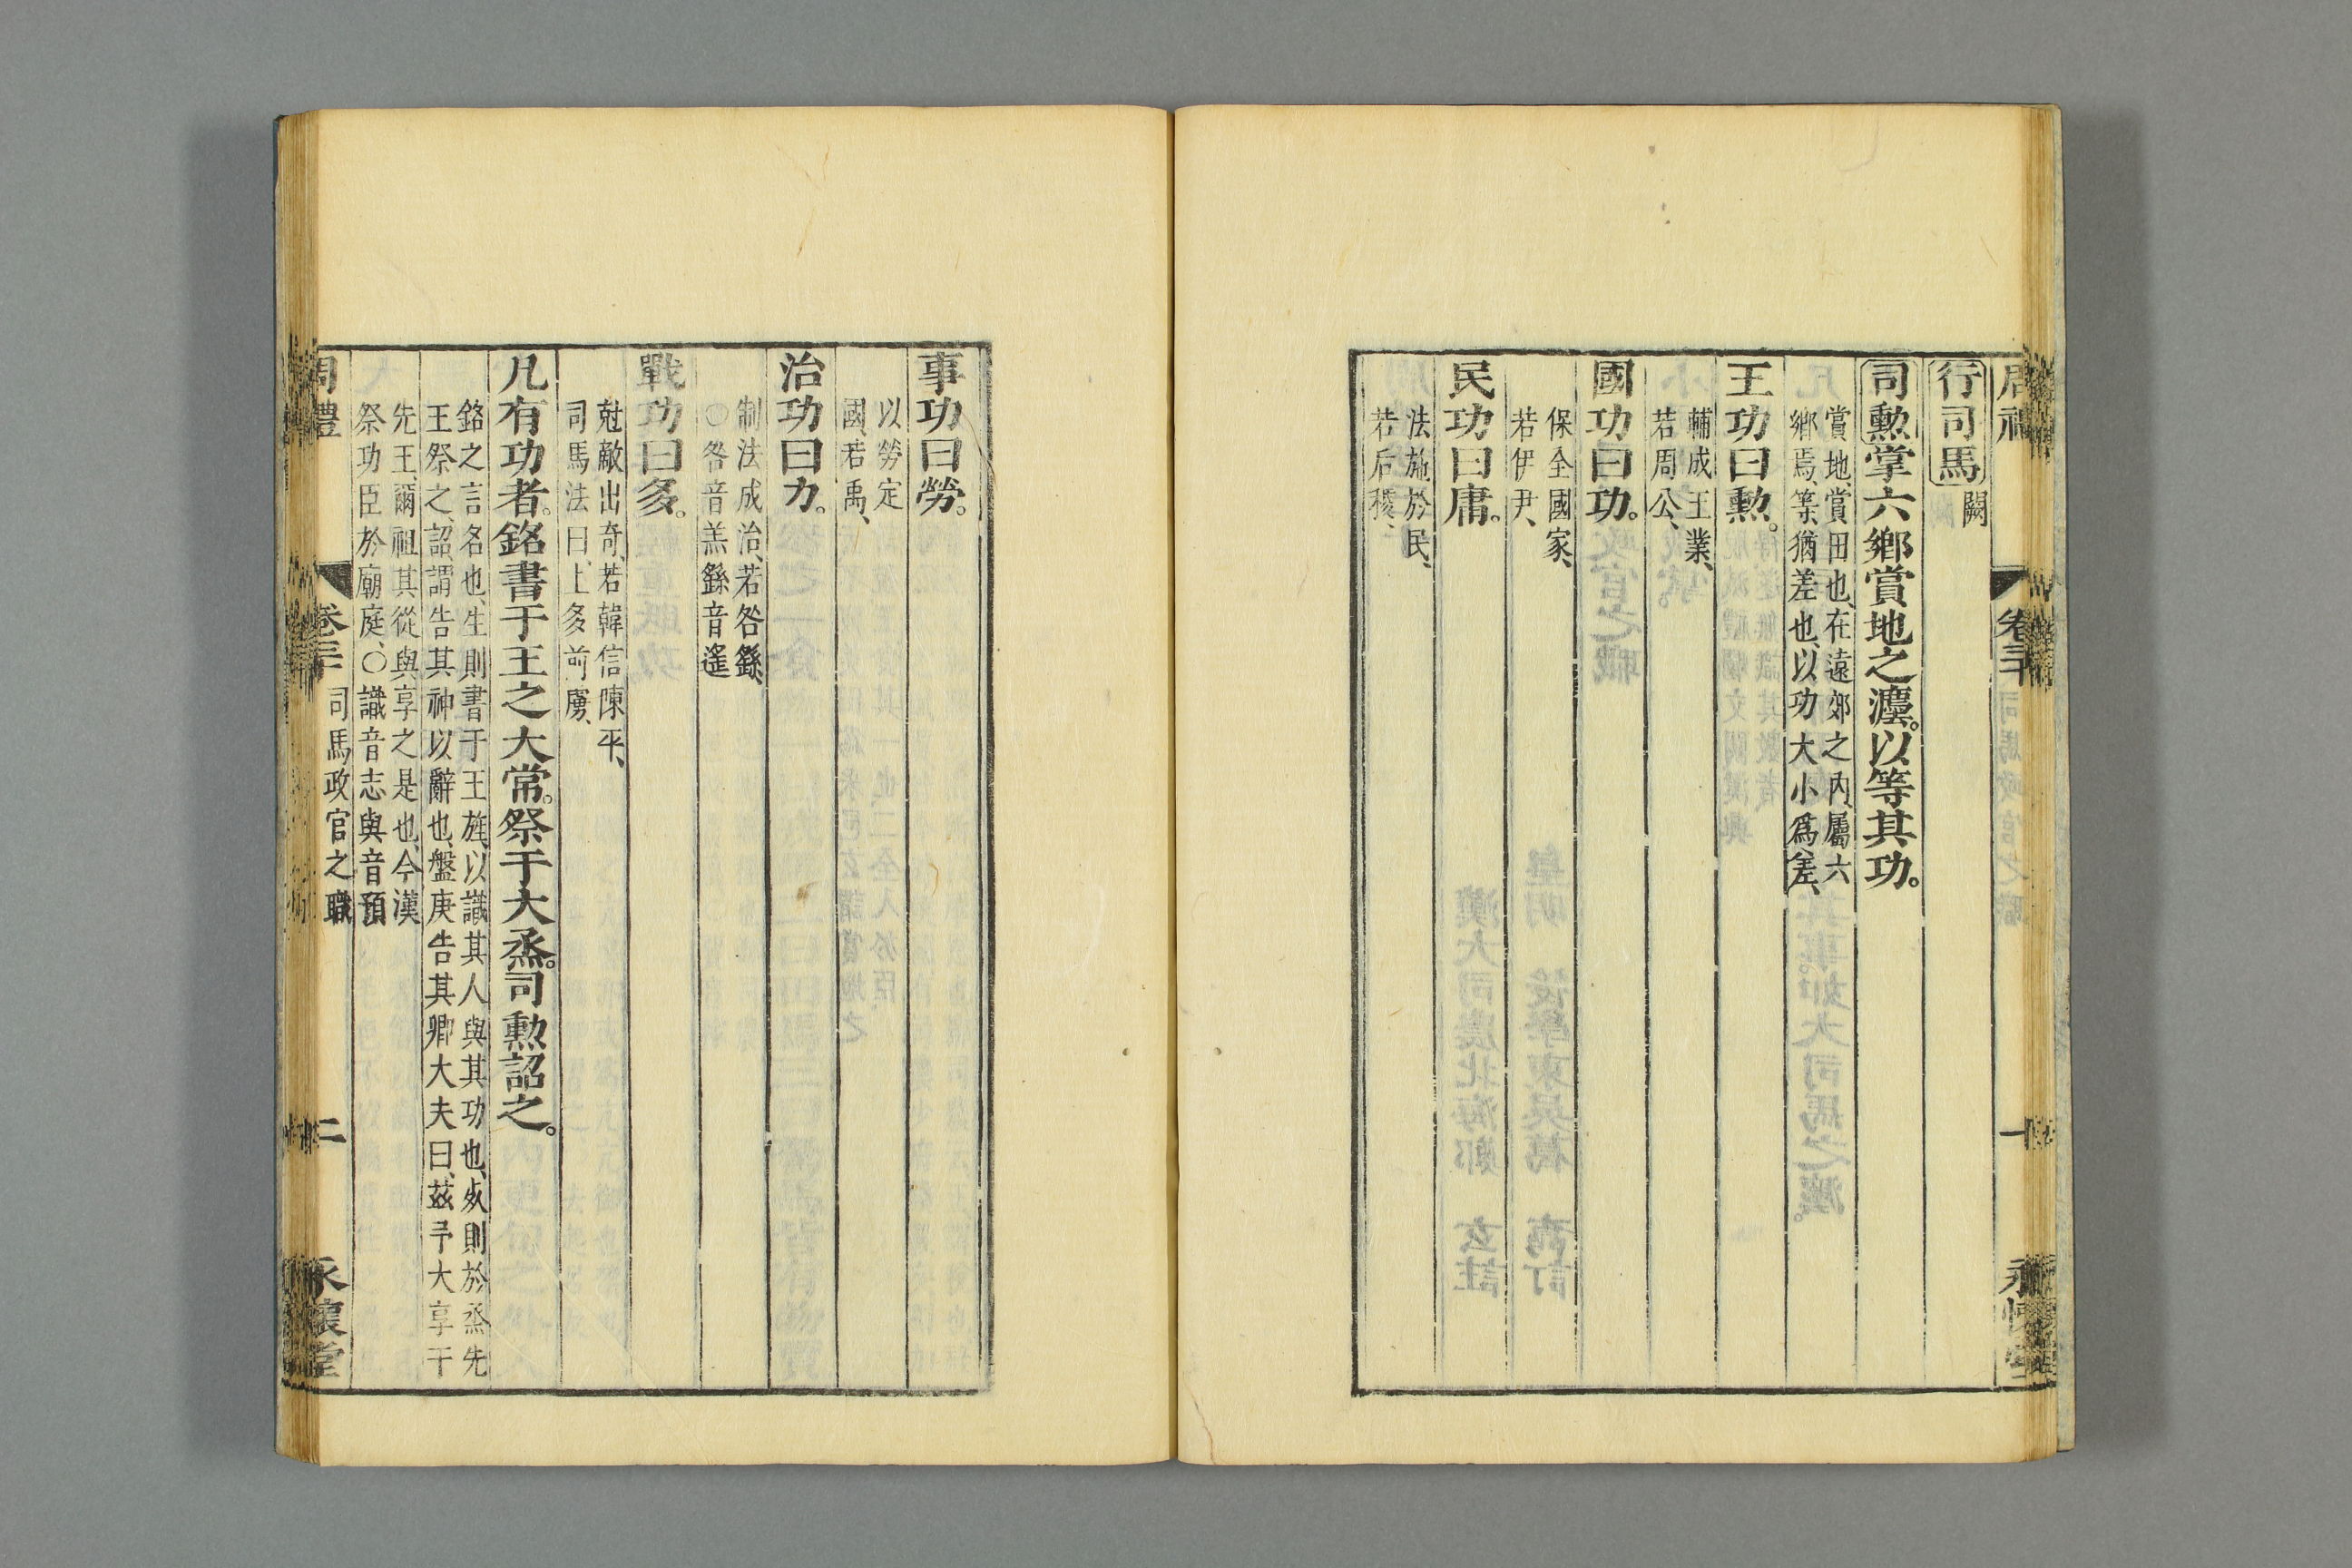 行司馬
闕
司勲掌六鄉賞地之灋。以等其功。
賞地、賞田也、在遠郊之內、屬六
鄉焉、等、猶差也、以功大小爲差、
王功曰勲。
輔成王業、
若周公、
國功曰功。
保全國家、
若伊尹、
民功曰庸。
法施於民、
若后稷、
事功曰勞。
以勞定
國、若禹、
治功曰力。
制法成治、若咎繇、
〇咎音羔繇音遙
戰功曰多。
尅敵出奇、若韓信陳平、
司馬法曰、上多前虜、
凡有功者。銘書于王之大常。祭于大烝。司勲詔之。
銘之言名也、生則書于王旌、以識其人與其功也、死則於烝先
王祭之、詔謂告其神以辭也、盤庚告其卿大夫曰、茲予大享于
先王、爾祖其從與享之是也、今漢
祭功臣於廟庭、〇識音志與音預
周禮
卷三十
司馬政官之職
二
永懷堂